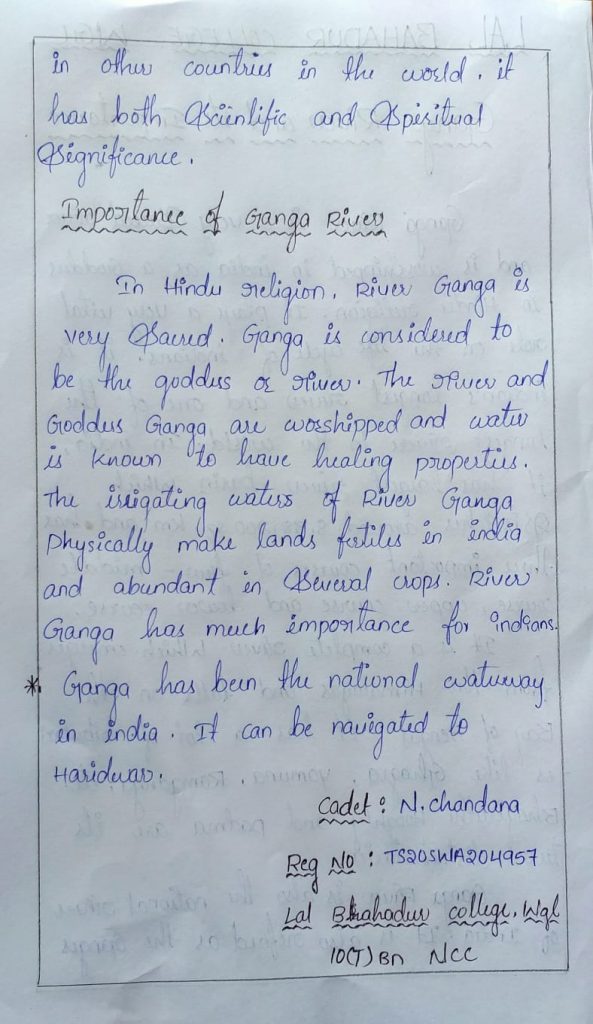 in other countries in the world. it
has both Scientific and Spiritual
Significance.
Importance of Ganga River
In Hindu religion, River Ganga is
very Sacred. Ganga is considered to
be the goddess or river. The river and
Goddess Ganga are worshipped and water
is known to have healing properties.
The irrigating waters of River Ganga
Physically make lands fertiles in india
and abundant in Several crops. River
Ganga has much importance for indians.
* Ganga has been the national waterway
in india. It can be navigated to
Haridwar.
Cadet : N. chandana
Reg No : TS20SWA204957
Lal Bahadur college, Wgl
10(T) Bn NCC